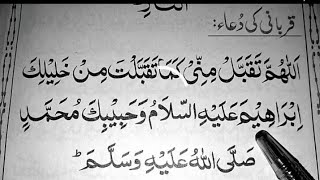 قربانی کی دُعاء:
اَللّٰهُمَّ تَقَبَّلْ مِنِّیْ كَمَا تَقَبَّلْتَ مِنْ خَلِیْلِكَ
اِبْرَاهِیْمَ عَلَیْهِ السَّلَامُ وَحَبِیْبِكَ مُحَمَّدٍ
صَلَّی اللّٰهُ عَلَیْهِ وَسَلَّمَ ؕ